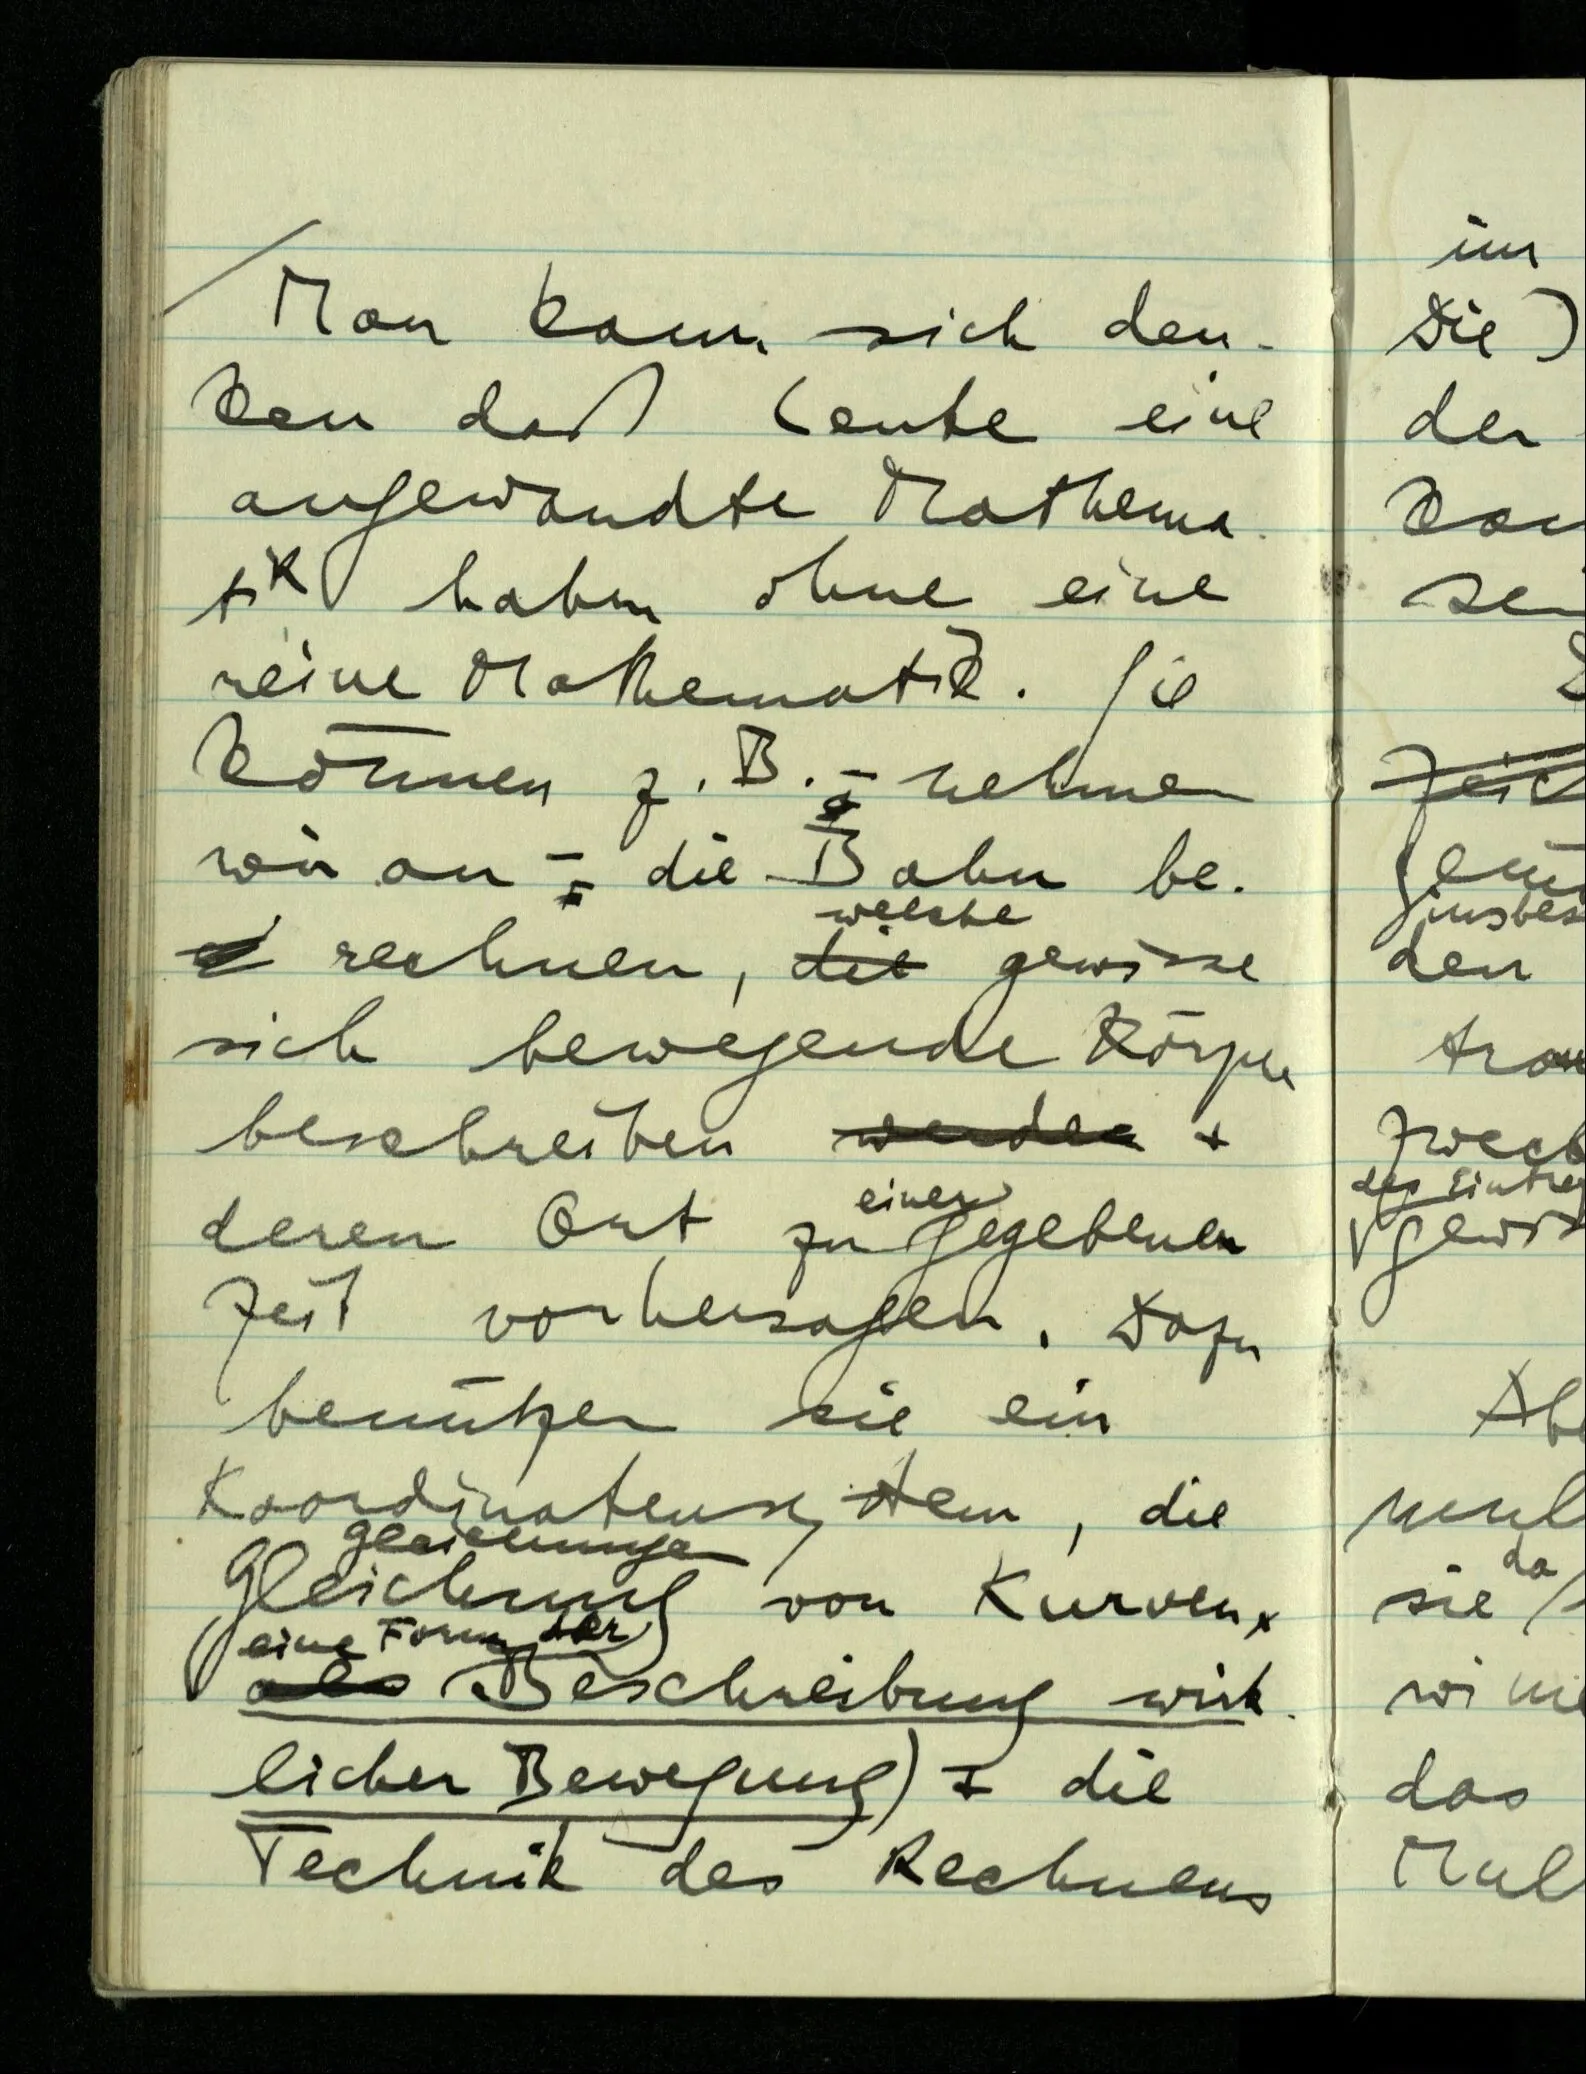 / Man kann sich den-
ken daß Leute eine
angewandte Mathema-
tik haben ohne eine
reine Mathematik. Sie
können z.B. – nehmen
wir an – die Bahn be-
rechnen, die welche gewisse
sich bewegende Körper
beschreiben werden +
deren Ort zu einer gegebenen
Zeit vorhersagen. Dazu
benützen sie ein
Koordinatensystem, die
Gleichungen
Gleichung von Kurven
eine Form der
als Beschreibung wirk-
licher Bewegung) + die
Technik des Rechnens
im
Die
der
den
sie da
das